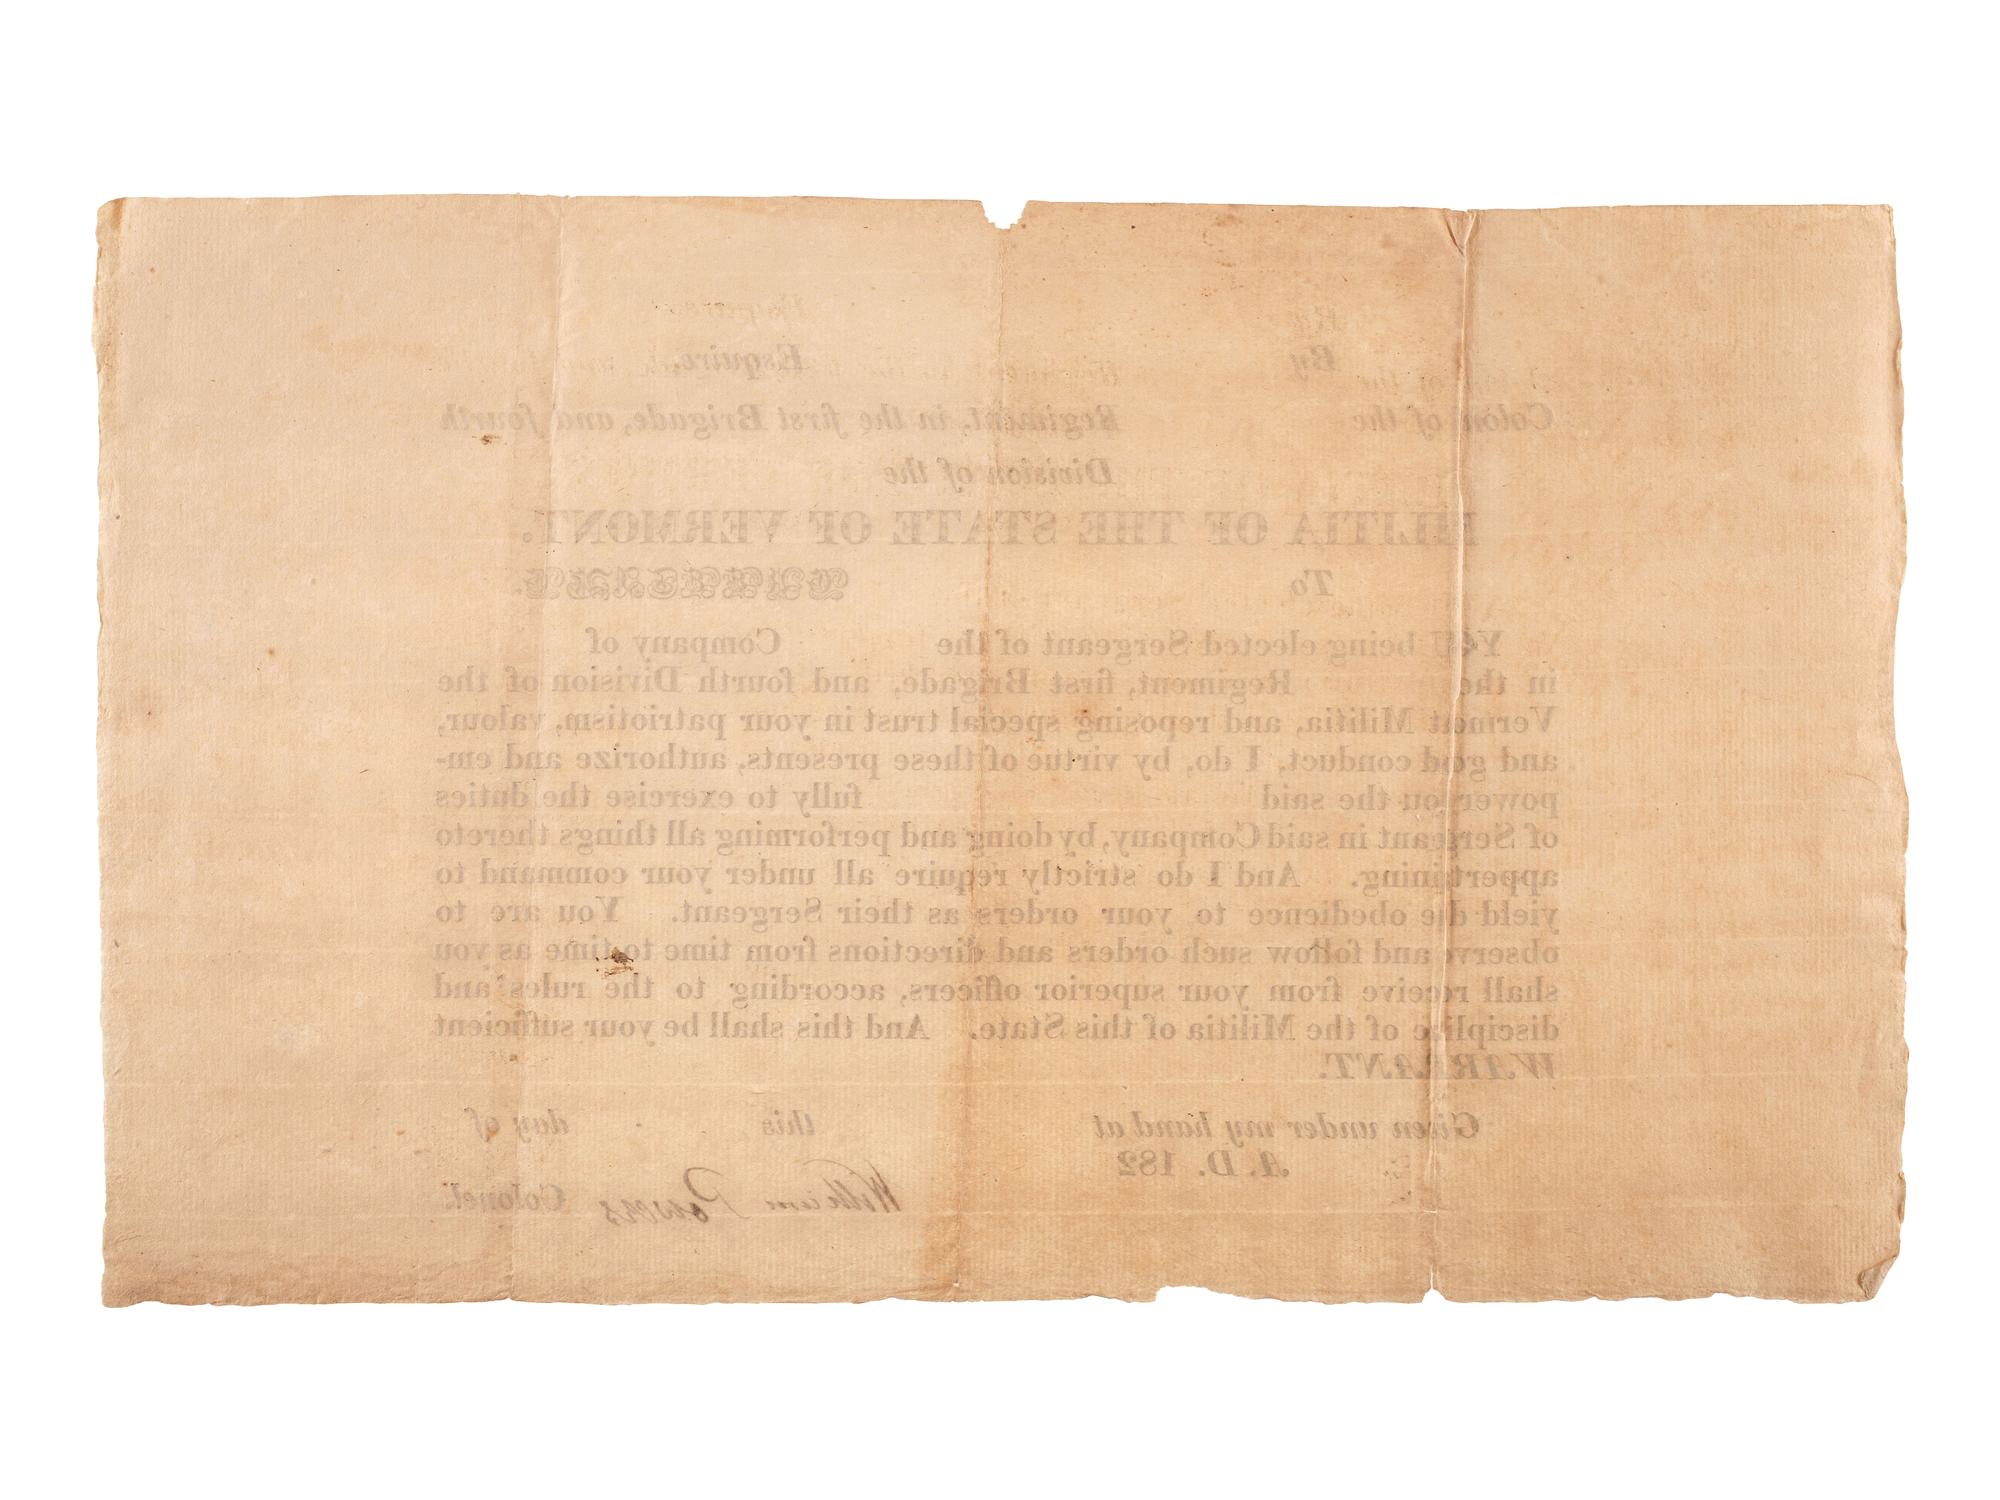 By Esquire,
Colon of the Regiment, in the first Brigade, and fourth
Division of the
MILITIA OF THE STATE OF VERMONT.
To GREETING.
YOU being elected Sergeant of the Company of
in the Regiment, first Brigade, and fourth Division of the
Vermont Militia, and reposing special trust in your patriotism, valour,
and good conduct, I do, by virtue of these presents, authorize and em-
power you the said fully to exercise the duties
of Sergeant in said Company, by doing and performing all things thereto
appertaining. And I do strictly require all under your command to
yield due obedience to your orders as their Sergeant. You are to
observe and follow such orders and directions from time to time as you
shall receive from your superior officers, according to the rules and
discipline of the Militia of this State. And this shall be your sufficient
WARRANT.
Given under my hand at this day of
A. D. 182
William Powers Colonel.